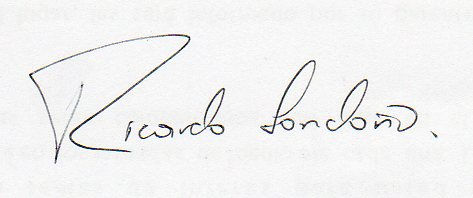 Ricardo Londoño.